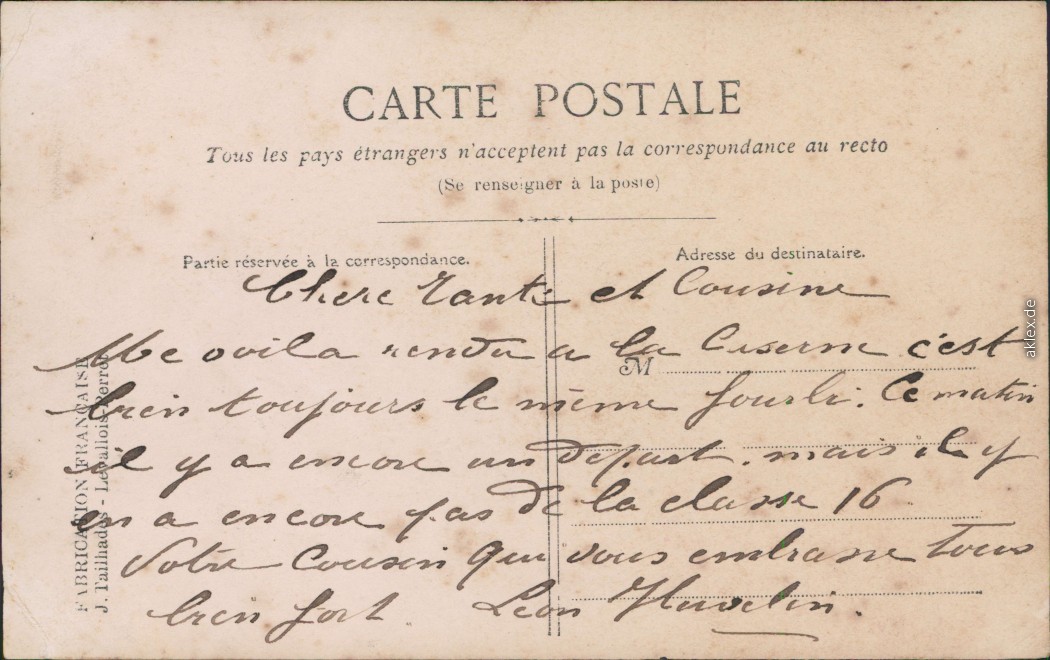 CARTE POSTALE
Tous les pays étrangers n'acceptent pas la correspondance au recto
(Se renseigner à la poste)
Partie réservée à la correspondance.
Adresse du destinataire.
Chere Tante et Cousine
Me voila rendu a la Caserne c'est
M
bien toujours le même fourbi. Ce matin
il y a encore un depart. mais il y
en a encore pas de la classe 16
Votre Cousin qui vous embrasse tous
bien fort. Léon Huvelin.
FABRICATION FRANÇAISE
J. Tailhades - Levallois-Perret
aklex.de